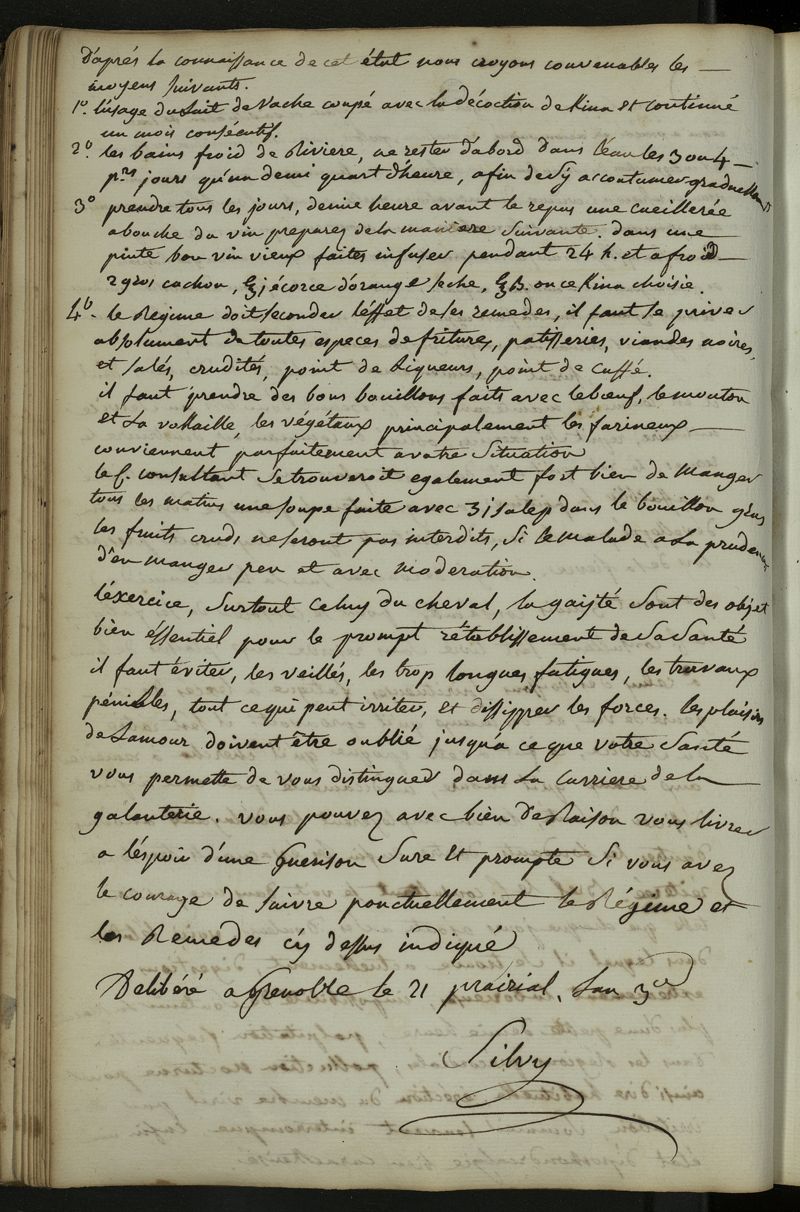 D'après la connaissance de cet état nous croyons convenables les —
moyens suivants.
1° l'usage du Lait de Vache coupé avec la décoction de Kina et continué
un mois consécutif.
2° les bains froid de Riviere, ne rester d'abord dans l'eau les 3 ou 4 —
p.rs jours qu'un demi quart d'heure, afin de s'y accoutumer graduellement
3° prendre tous les jours, demie heure avant le repas une cueillerée
a bouche du vin preparez de la maniere suivante. dans une —
pinte bon vin vieux faites infuser pendant 24 h. et a froid —
2 gros cachou, ℥j écorce d'orange seche, ℥ß. once Kina choisie.
4° le Regime doit seconder l'éffet de ses remedes, il faut se priver
absolument de toutes especes de fritures, patisseries, viandes noires,
et salés, crudités, point de Liqueurs, point de Caffé.
il faut prendre des bons bouillons faits avec le bœuf, le mouton
et la vollaille, les végétaux principalement les farineux —
conviennent parfaitement a votre Situation
le C. consultant se trouveroit egalement fort bien de manger
tous les matins une soupe faite avec ʒi salep dans le bouillon gras
les fruits cruds ne seront pas interdits, si le malade a la prudence
d'en manger peu et avec moderation.
l'éxercice, surtout celuy du cheval, la gaiété sont des objet
bien éssentiel pour le prompt rétablissement de sa Santé
il faut éviter, les veillés, les trop longues fatigues, les travaux
pénibles, tout ce qui peut irriter, et dissipper les forces. les plaisirs
de L'amour doivent être oublié jusqu'a ce que votre Santé
vous permette de vous distinguer dans la Carriere de la —
galanterie. vous pouvez avec bien de Raison vous livrer
a l'éspoir d'une Guerison Sure et prompte Si vous avez
le courage de suivre ponctuellement le Régime et
les Remedes cy dessus indiqué
Delibéré a Grenoble le 21 prairial, L'an 3e
Silvy